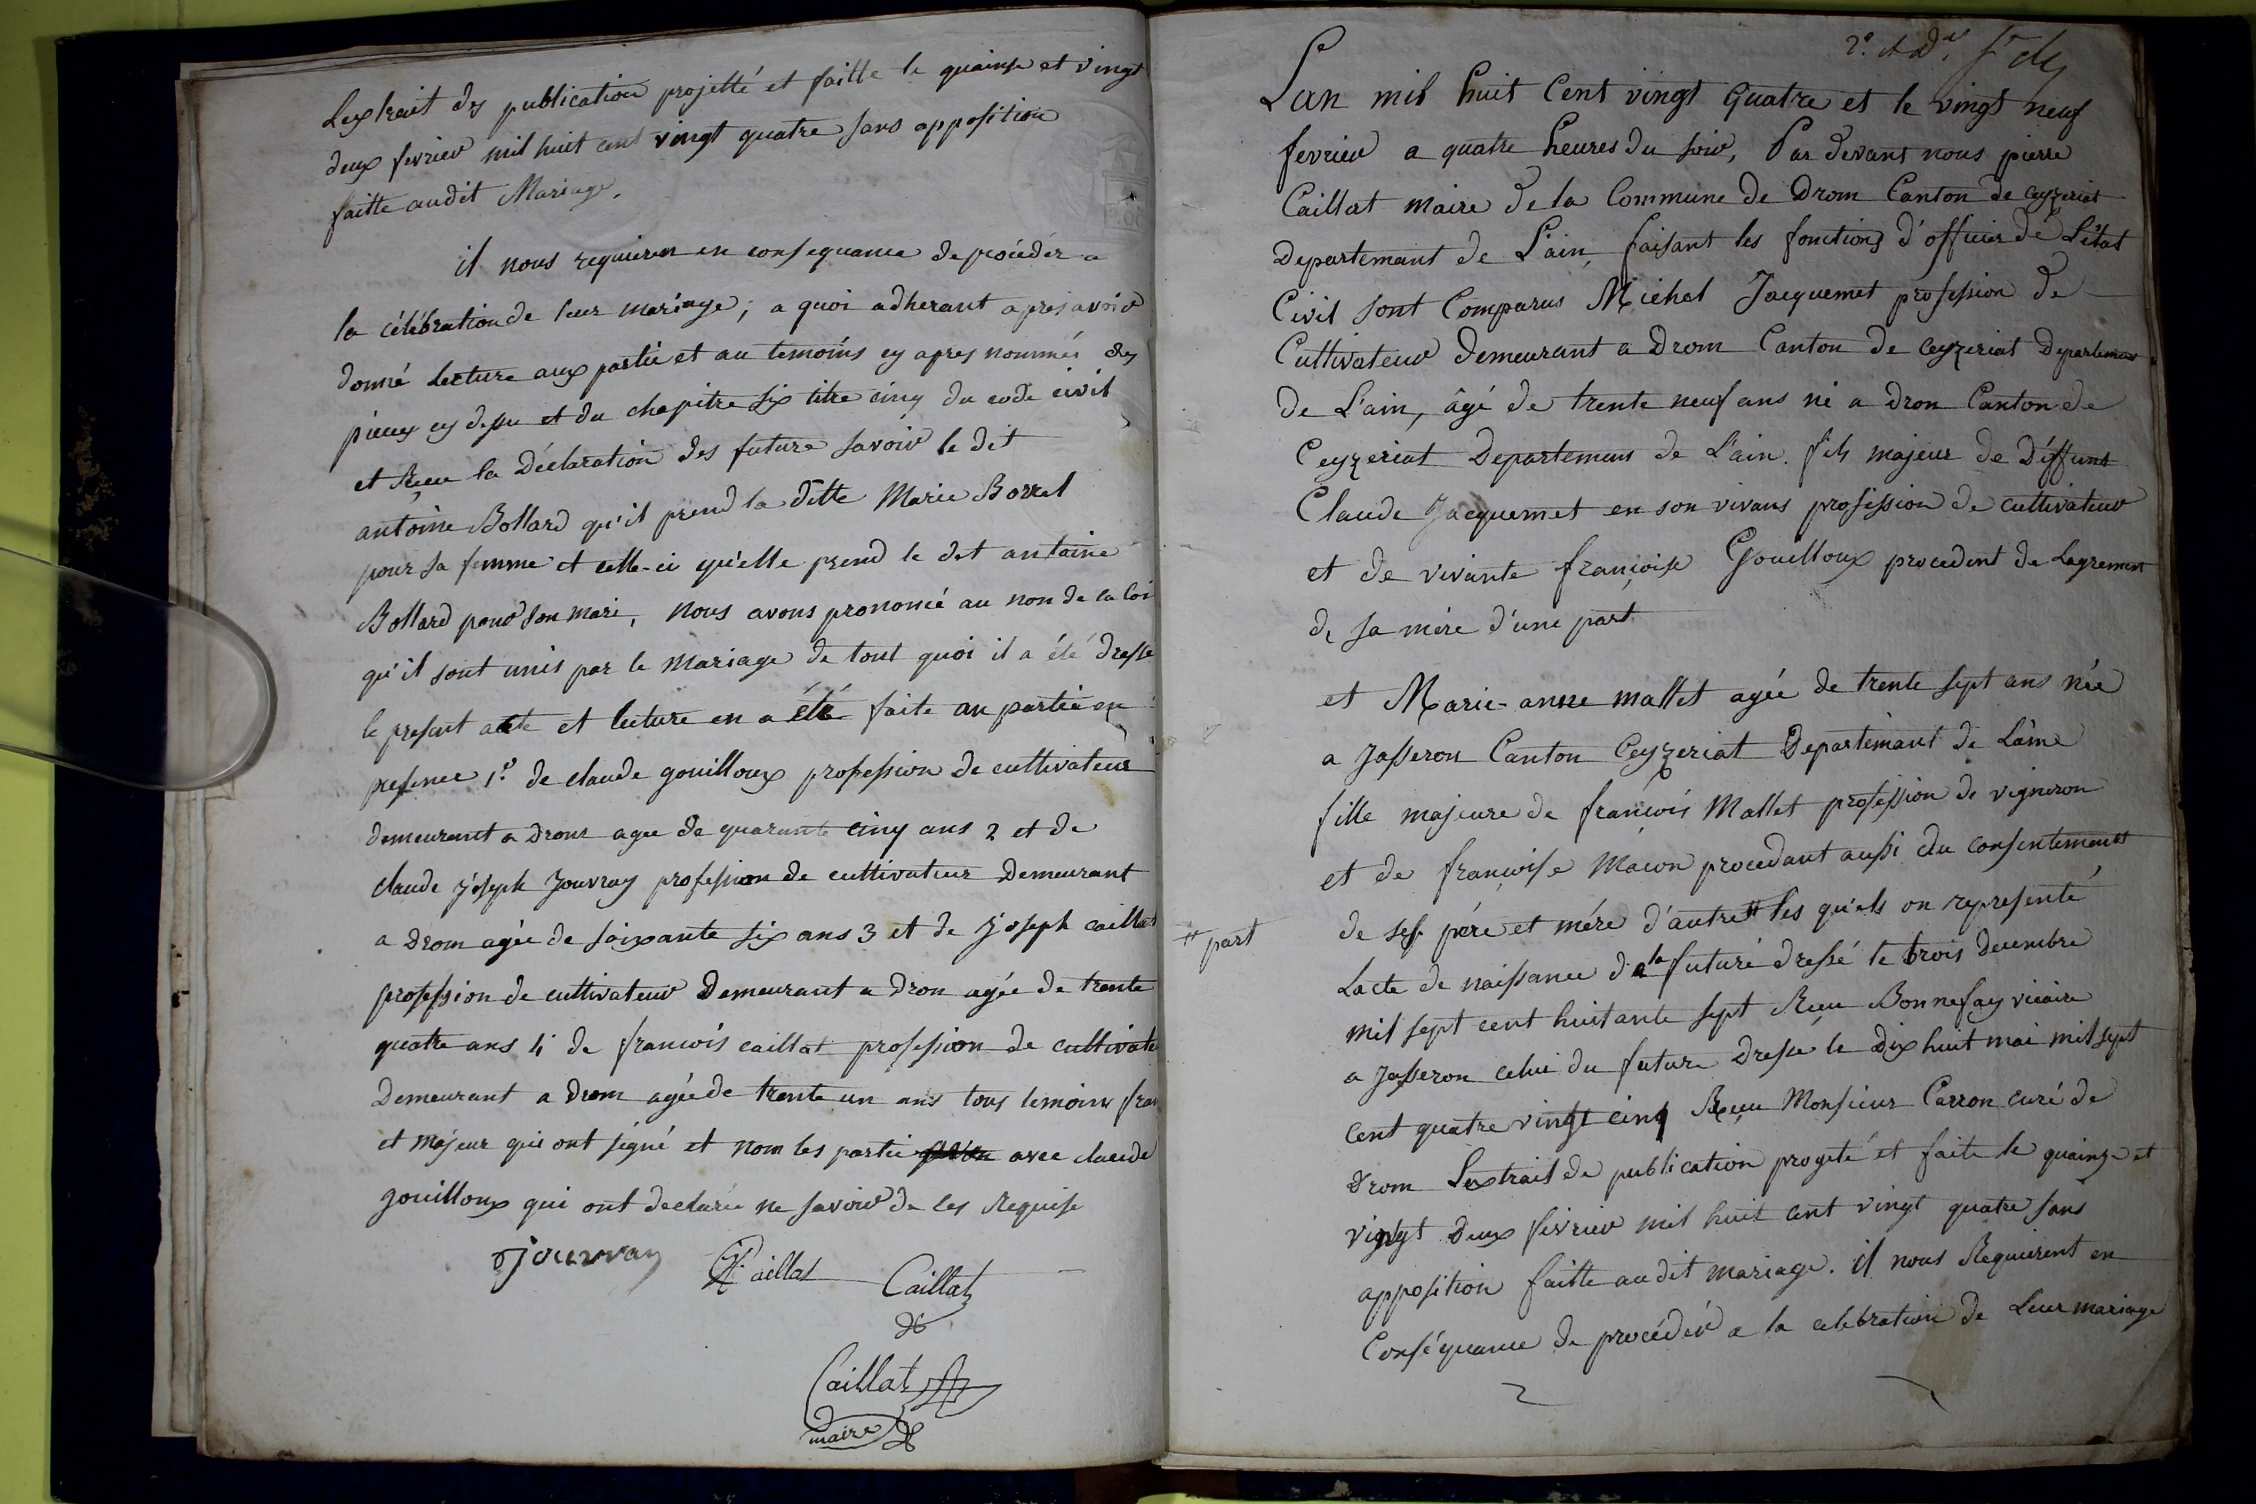 Lextrait des publication projetté et faitte le quainse et vingt
deux fevrier mil huit cent vingt quatre sans opposition
faitte audit Mariage.
il nous requieren en consequance de procéder a
la célébration de leur mariage; a quoi adherant apres avoir
donné Lecture aux partie et au temoins cy apres nommés des
pieces cy dessu et du chapitre six titre cinq du code civil
et Recu la Déclaration des future savoir le dit
antoine Bollard qu'il prend la ditte Marie Borrel
pour sa femme et celle-ci qu'elle prend le dit antoine
Bollard pour son mari, nous avons prononcé au non de la loi
qu'il sont unis par le mariage de tout quoi il a été dresse
le present acte et lecture en a été faite au partie en
presence 1.° de claude gouilloux profession de cultivateur
demeurant a drom agee de quarante cinq ans 2 et de
claude joseph Jouvray profession de cultivateur Demeurant
a Drom agée de soixante six ans 3 et de joseph caillat
profession de cultivateur Demeurant a dron agée de trente
quatre ans 4 de francois caillat profession de cultivate
Demeurant a drom agée de trente un ans tous temoins fran
et majeur qui ont signé et nom les partie avec claude
gouilloux qui ont declarée ne savoir de les Requise
Jouvray Caillat Caillat
Caillat
maire
2.° et d.er
Lan mil huit Cent vingt quatre et le vingt neuf
fevrier a quatre heures du soir, Par devant nous pierre
Caillat maire de la Commune de Drom Canton de ceyzeriat
Departemant de L'ain, faisant les fonctions d'officier de L'état
Civil sont Comparus Michel Jacquemet profession de
Cultivateur demeurant a Drom Canton de ceyzeriat Departemens
de L'ain, âgé de trente neuf ans né a dron Canton de
Ceyzeriat Departemens de L'ain. fils majeur de Déffunt
Claude Jacquemet en son vivans profession de cultivateur
et de vivante françoise Gouilloux procedent de Lagrement
de sa mère d'une part
et Marie-anne mallet agée de trente sept ans née
a Jasseron Canton Ceyzeriat Departemant de Laine
fille majeure de francois Mallet profession de vigneron
et de françoise Macon procedant aussi du consentement
de ses père et mére d'autre # les quels on representé
# part
Lacte de naissance de la future dressé le trois decembre
mil sept cent huitante sept Recu Bonnefay vicaire
a Jasseron celui du future Dresse le dix huit mai mil sept
cent quatre vingt cinq Recu Monsieur Carron curé de
drom Lextrait de publication progeté et faite le quainze et
vingt deux fevrier mil huit cent vingt quatre sans
opposition faitte audit mariage. il nous Requierent en
Conséquance de procéder a la celebration de Leur mariage